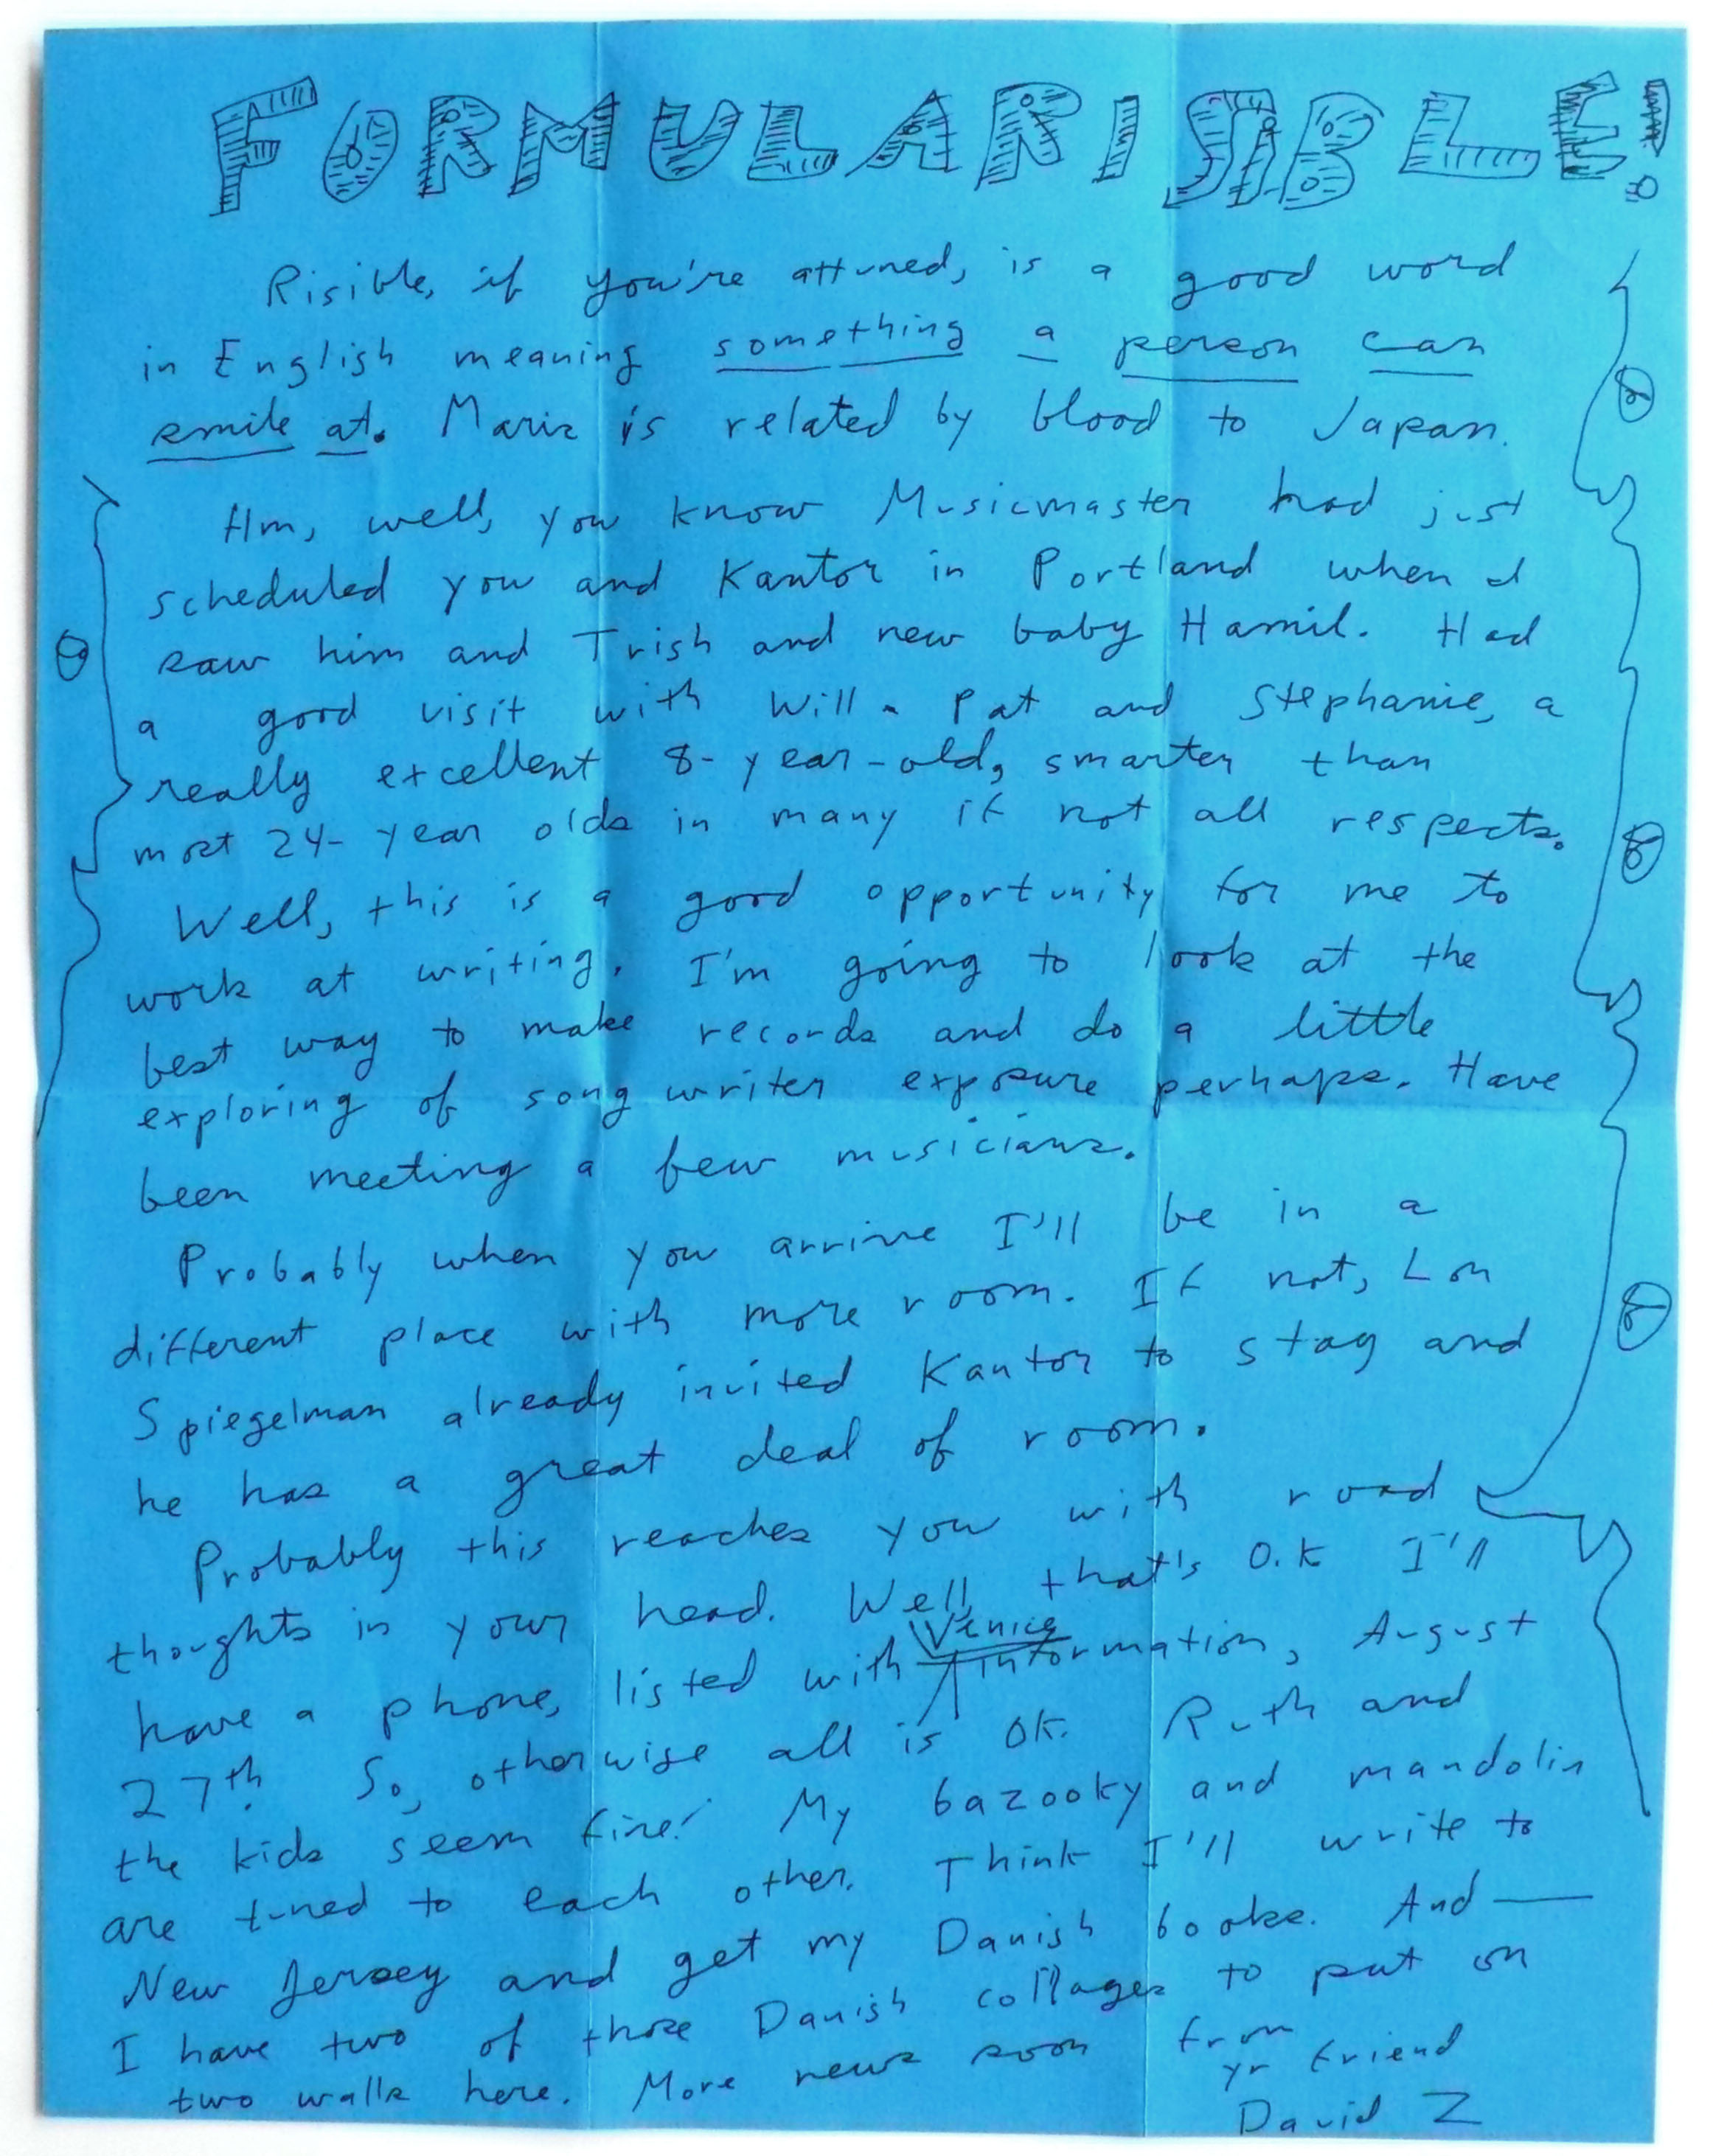 FORMULARISIBLE!
Risible, if you're attuned, is a good word
in English meaning something a person can
smile at. Marie is related by blood to Japan.
Hm, well, you know Musicmaster had just
scheduled you and Kantor in Portland when I
saw him and Trish and new baby Hamil. Had
a good visit with Will - Pat and Stephanie, a
really excellent 8-year-old, smarter than
most 24-year olds in many if not all respects.
Well, this is a good opportunity for me to
work at writing. I'm going to look at the
best way to make records and do a little
exploring of song writer exposure perhaps. Have
been meeting a few musicians.
Probably when you arrive I'll be in a
different place with more room. If not, Lon
Spiegelman already invited Kantor to stay and
he has a great deal of room.
Probably this reaches you with road
thoughts in your head. Well, that's O.K I'll
have a phone, listed with Venice information, August
27th. So, otherwise all is OK. Ruth and
the kids seem fine! My bazooky and mandolin
are tuned to each other. Think I'll write to
New Jersey and get my Danish books. And —
I have two of those Danish collages to put on
two walls here. More news soon from
yr friend
David Z